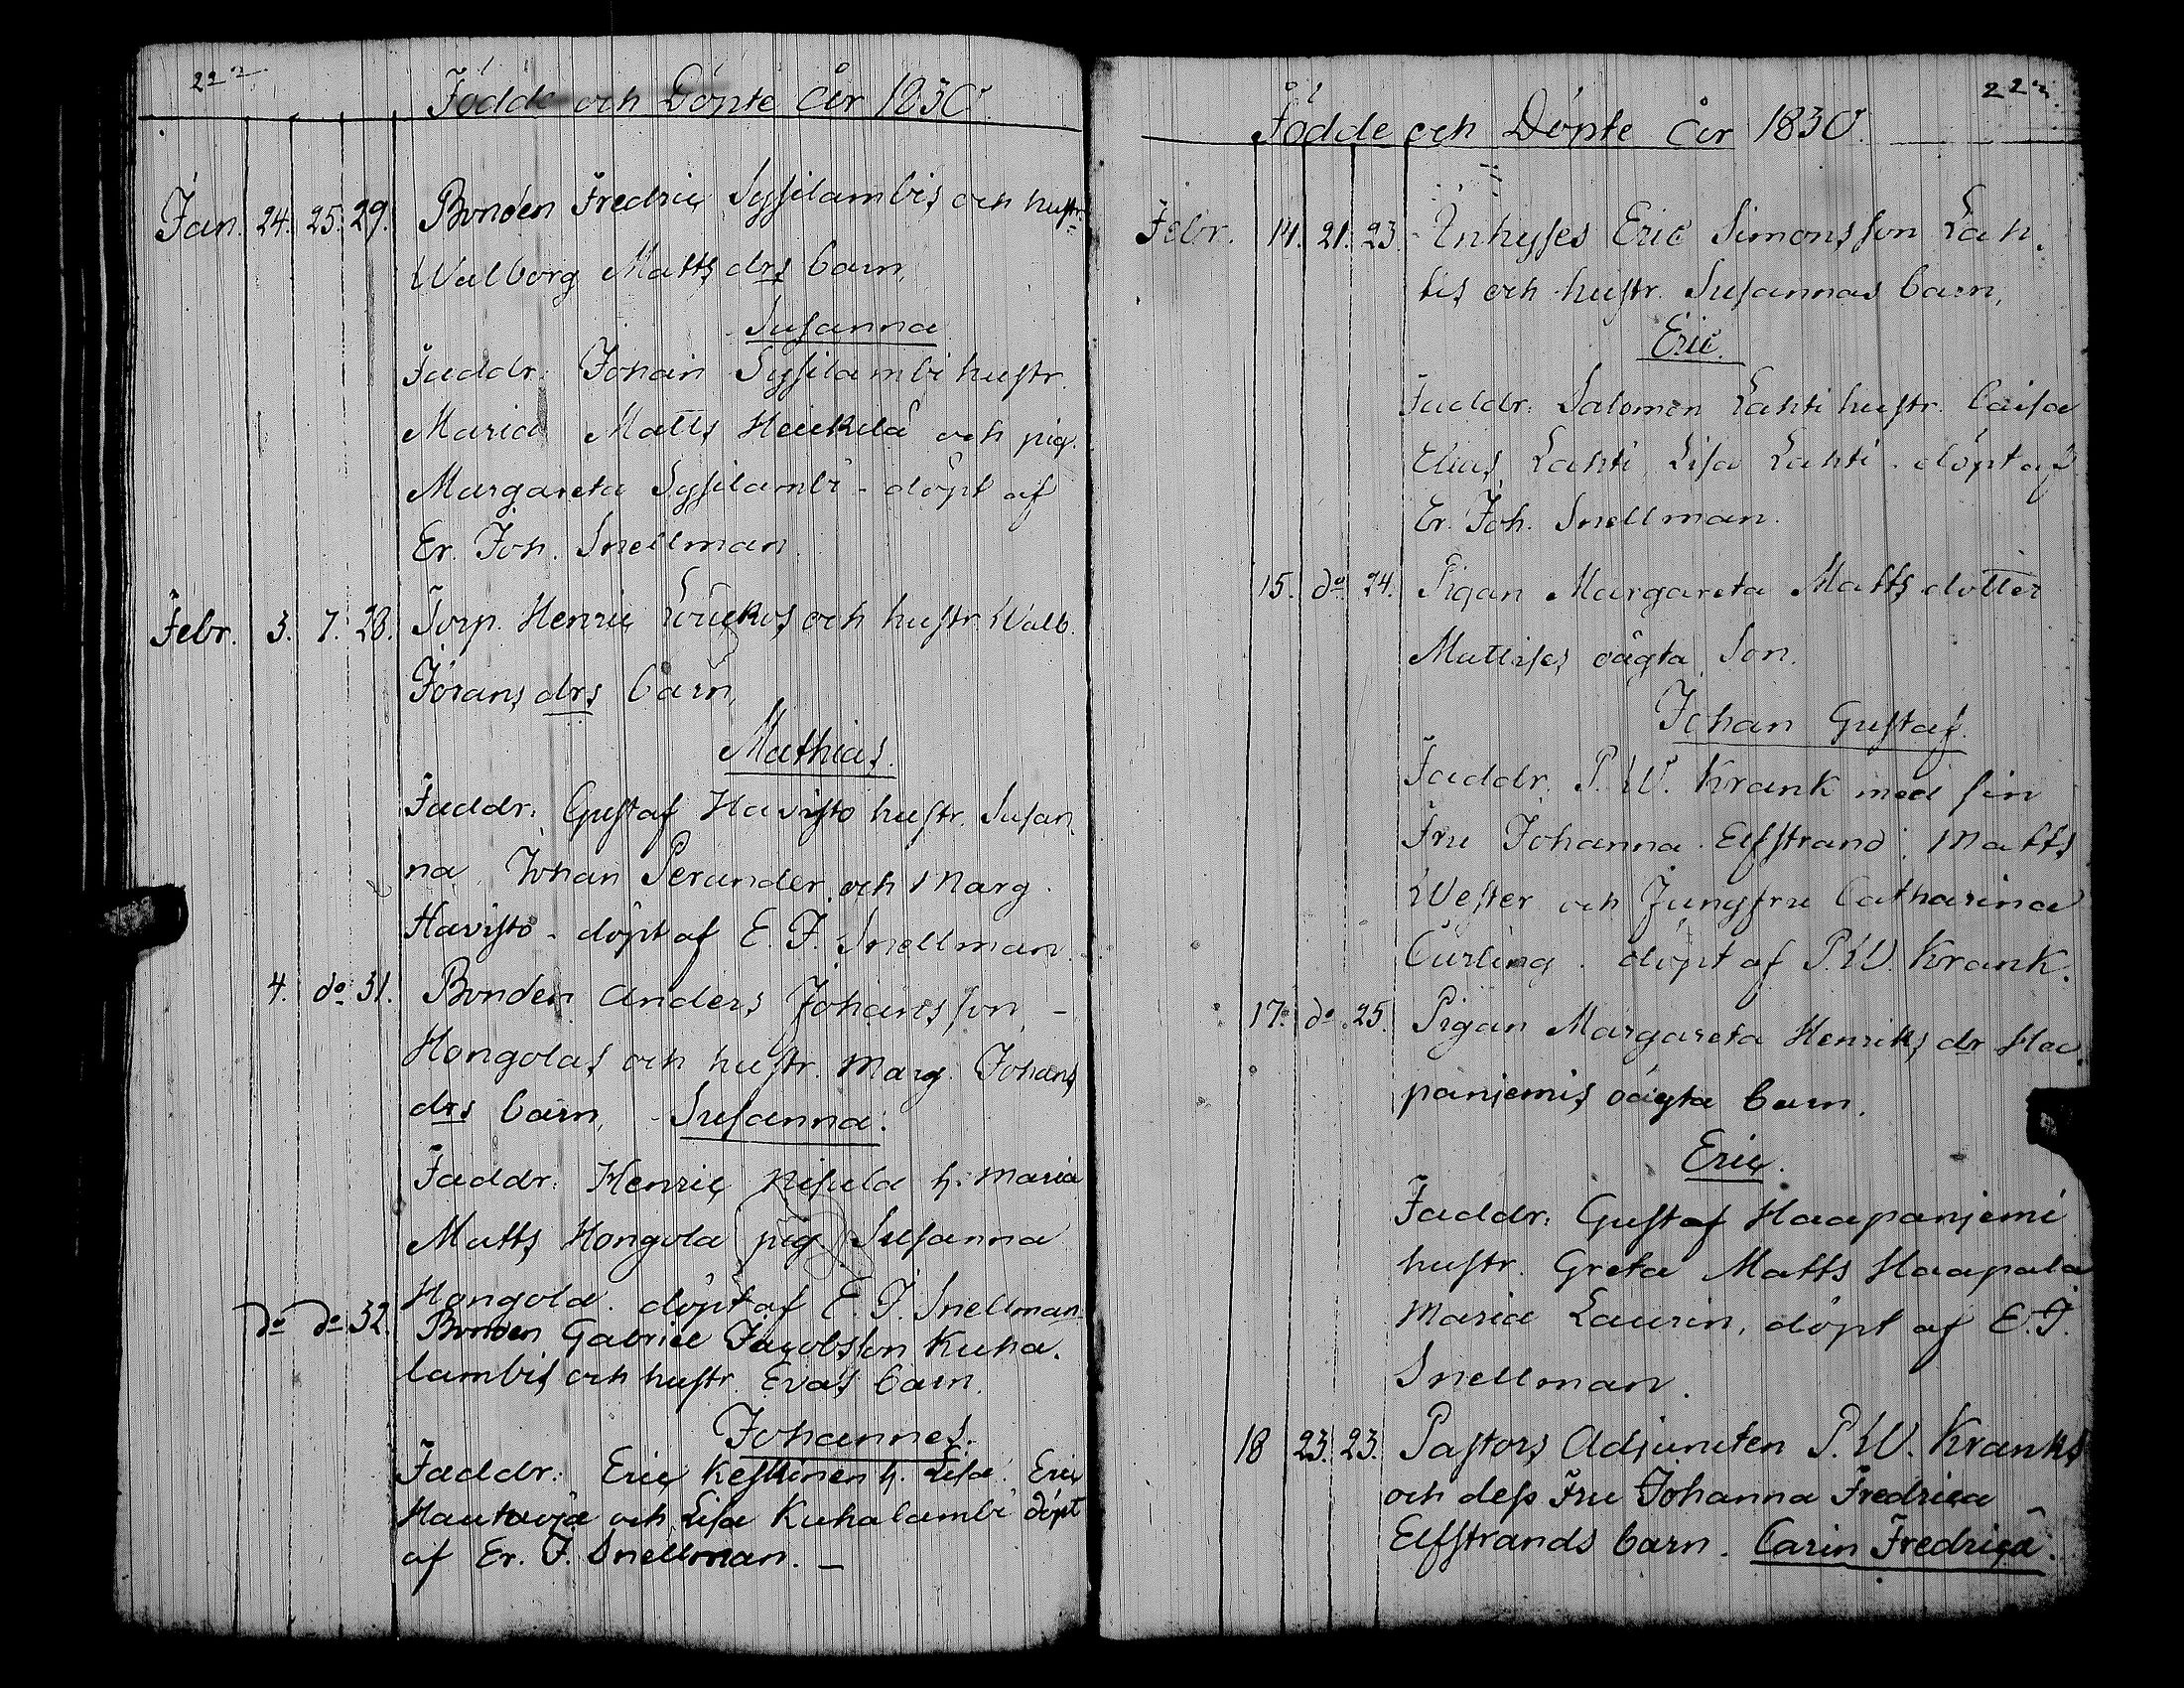 222
Födde och Döpte År 1830
Jan. 24. 25. 29. Bonden Fredric Sysilambis och hustr.
Walborg Matts drs barn,
Susanna
Faddr. Johan Sysilambi hustr.
Maria Matts Heikkilä och pig.
Margareta Sysilambi - döpt af
Er. Joh. Snellman.
Febr. 3. 7. 28. Torp. Henric Loukos och hustr. Walb.
Jörans drs barn,
Mathias.
Faddr. Gustaf Havisto hustr. Susan.
na, Johan Perander och Marg.
Havisto - döpt af E. J. Snellman.
4. do 31. Bonden Anders Johansson -
Hongolas och hustr. Marg. Johans
drs barn, Susanna.
Faddr. Henric Nisula h. Maria
Matts Hongola pig. Susanna
Hongola. döpt af E. J. Snellman
do do 32. Bonden Gabriel Jacobsson Kuha.
lambis och hustr. Evas barn.
Johannes.
Faddr. Eric Keskinen h. Lisa. Eric
Hautaoja och Lisa Kuhalambi döpt
af Er. J. Snellman. -
223.
Födde och Döpte År 1830.
Febr. 14. 21. 23. Inhyses Eric Simonsson Lah.
tis och hustr. Susannas barn,
Eric.
Faddr. Salomon Lahti hustr. Caisa
Elias Lahti, Lisa Lahti - döpt af
Er. Joh. Snellman.
15. do 24. Pigan Margareta Matts dotter
Matises oägta Son.
Johan Gustaf.
Faddr. P. W. Krank med sin
Fru Johanna Elfstrand. Matts
Wester och Jungfru Catharina
Curling. döpt af P. W. Krank.
17. do 25. Pigan Margareta Henriks dr Haa
panjemis oägta barn.
Eric.
Faddr. Gustaf Haapanjemi
hustr. Greta Matts Haapala
Maria Laurin, döpt af E. J.
Snellman.
18 23. 23. Pastors Adjuncten P. W. Kranks
och dess Fru Johanna Fredrica
Elfstrands barn. Carin Fredrica.